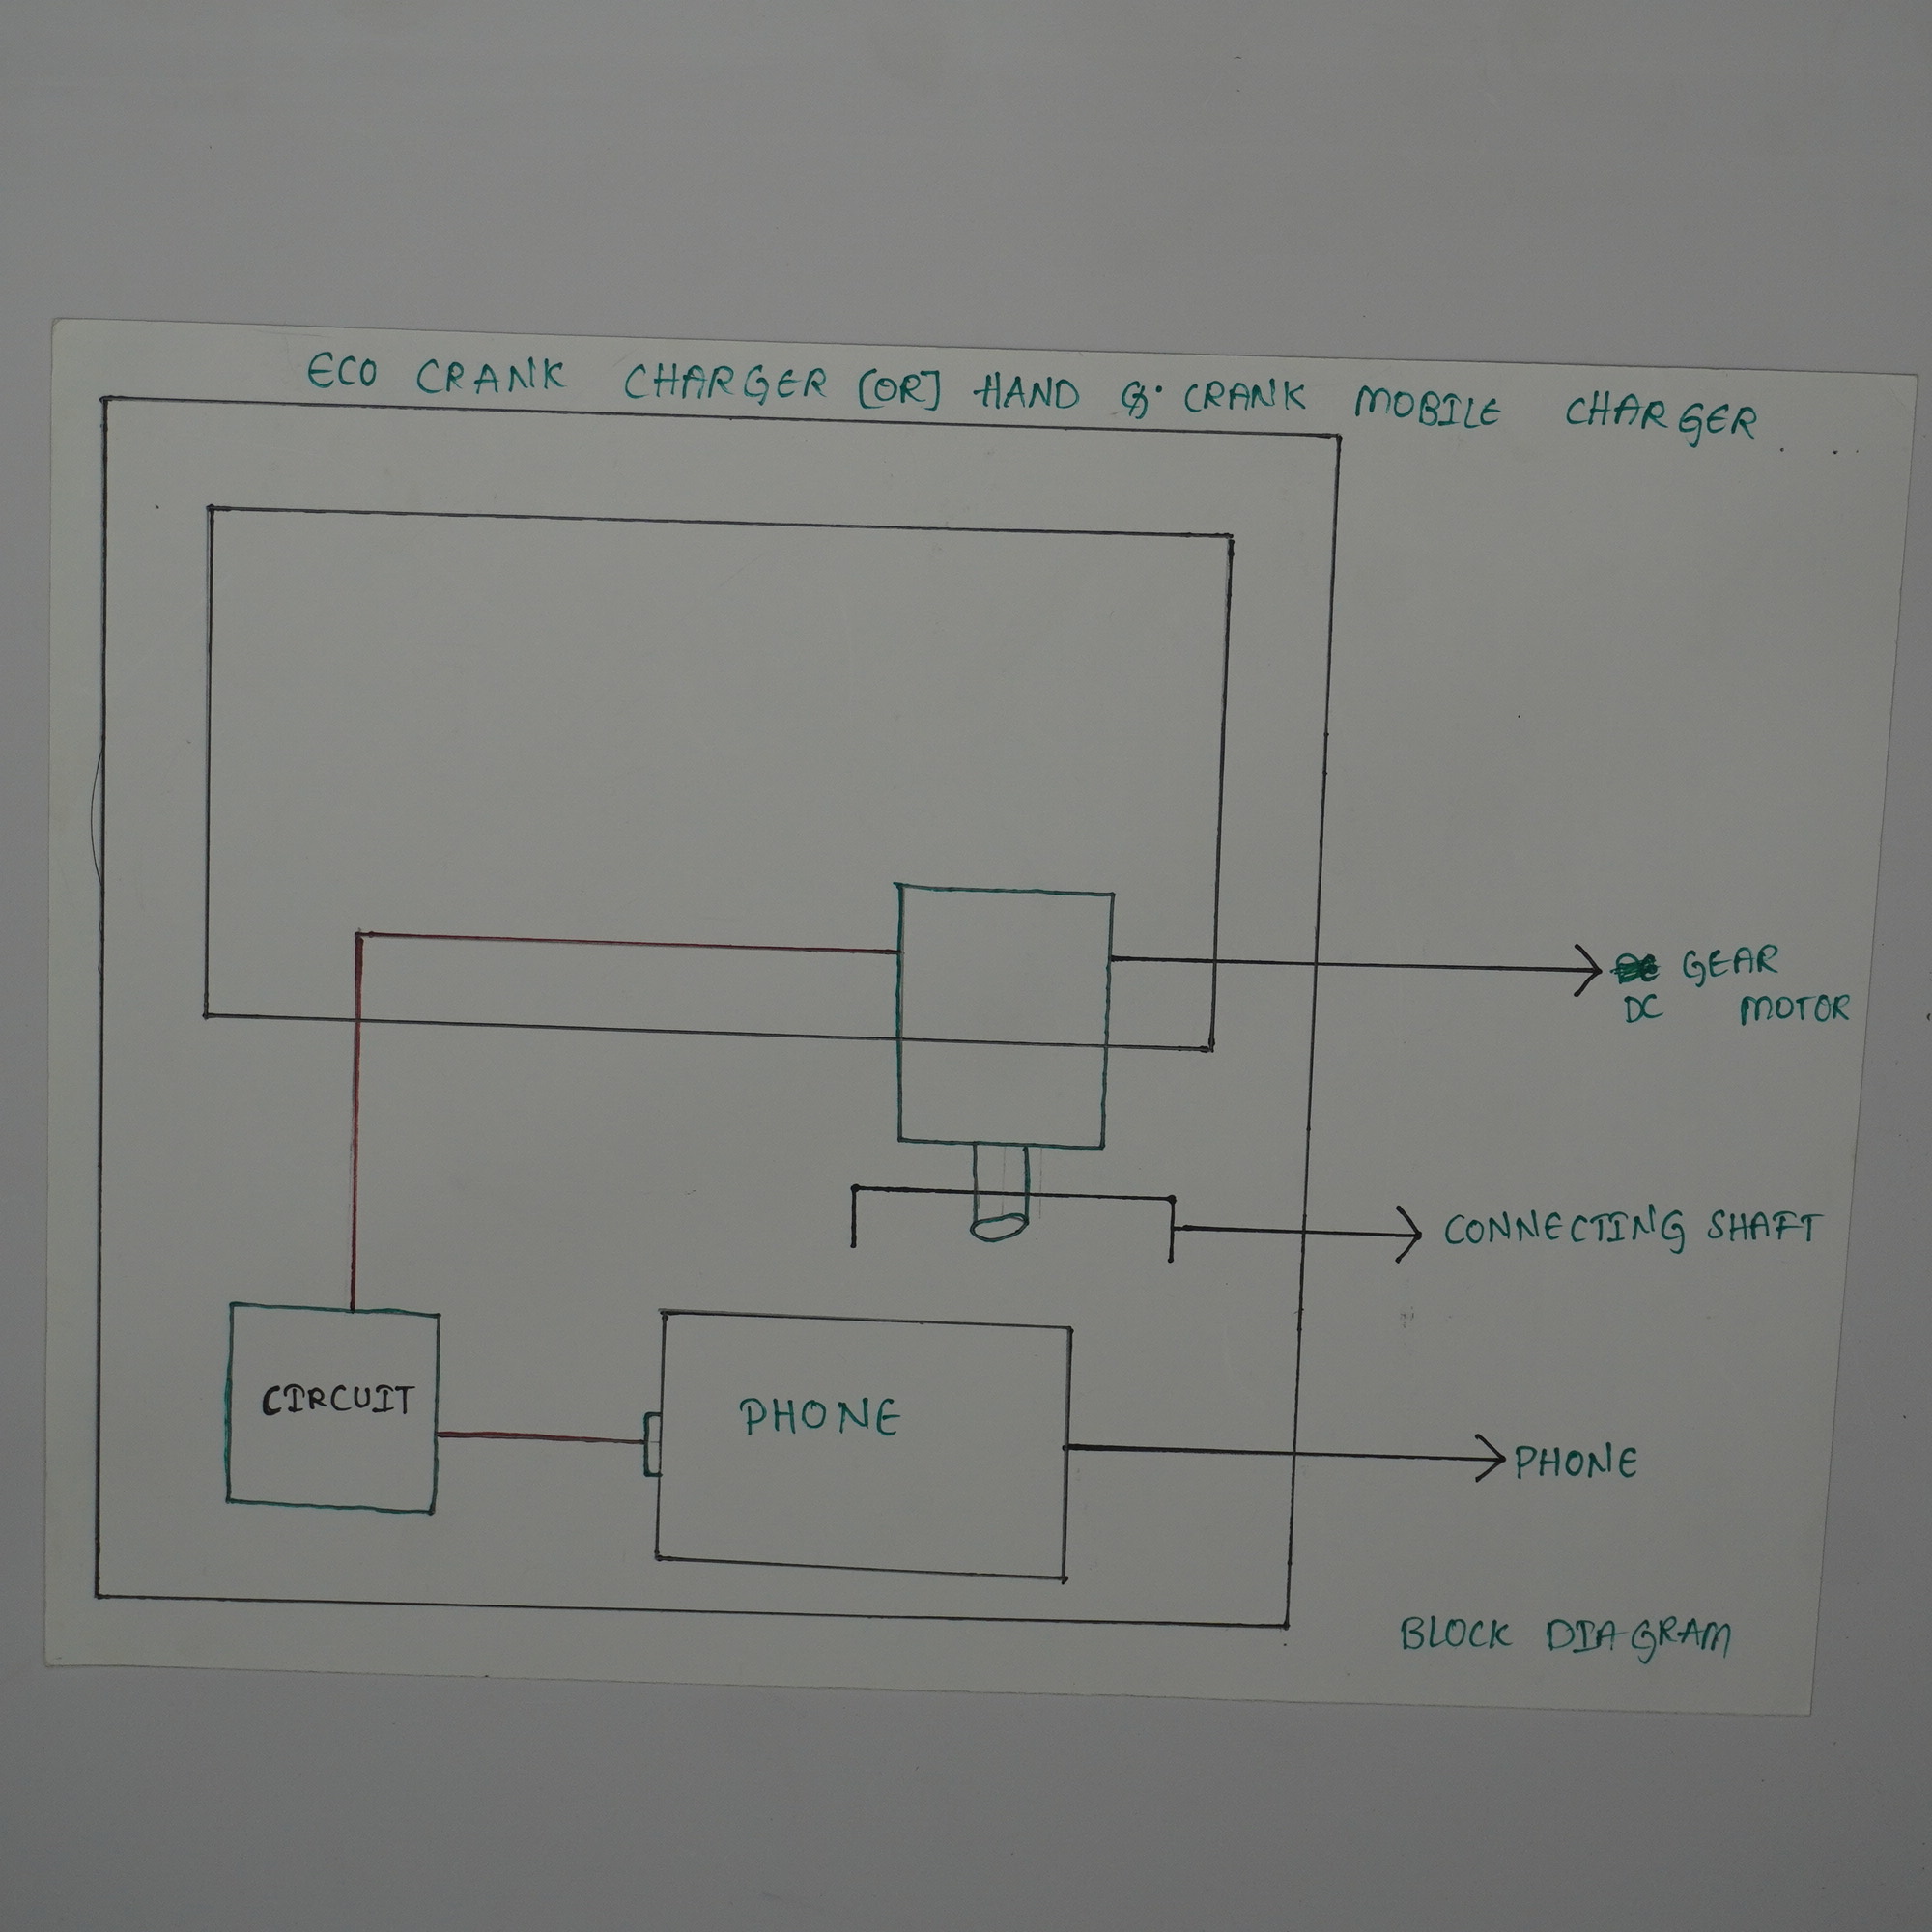 ECO CRANK CHARGER [OR] HAND CRANK MOBILE CHARGER
GEAR
DC MOTOR
CONNECTING SHAFT
CIRCUIT
PHONE
PHONE
BLOCK DIAGRAM